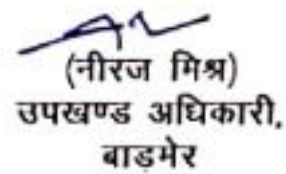 (नीरज मिश्र)
उपखण्ड अधिकारी,
बाडमेर